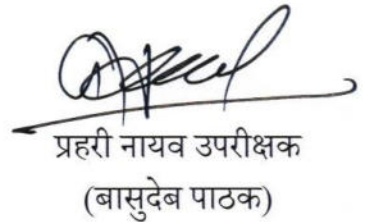 प्रहरी नायव उपरीक्षक
(बासुदेब पाठक)